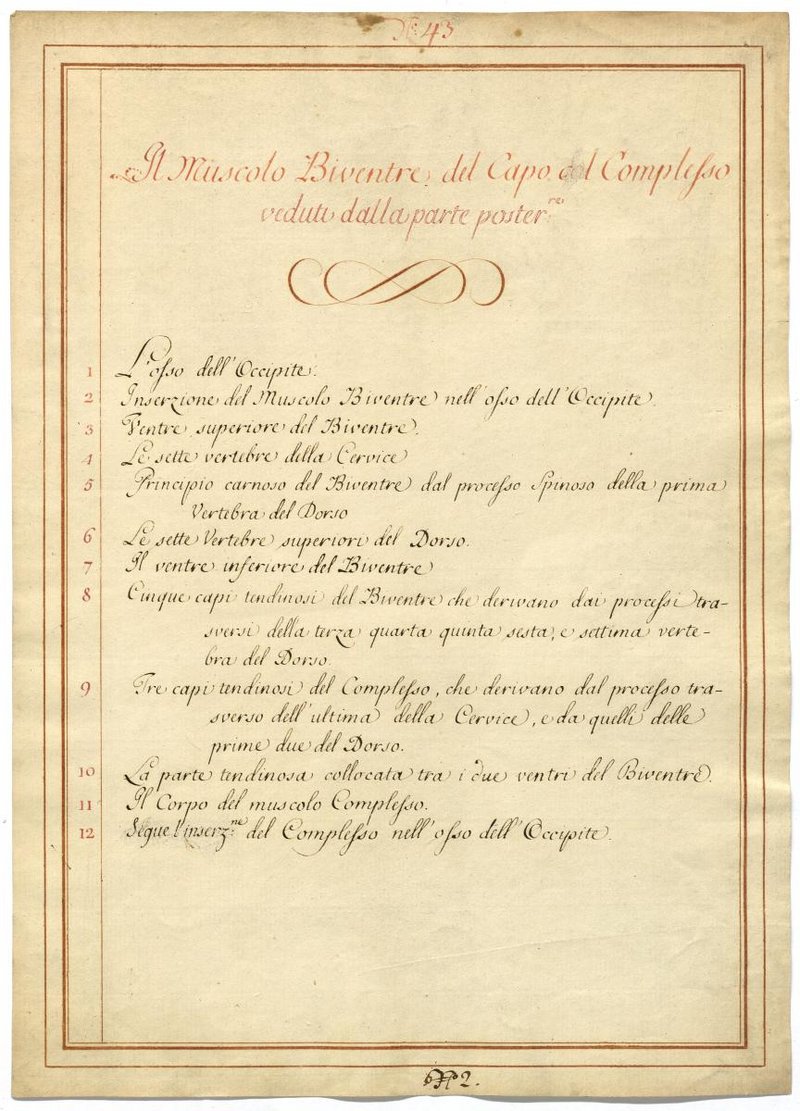 N.° 43
Il Muscolo Biventre del Capo col Complesso
veduti dalla parte poster.re
1 L'osso dell'Occipite.
2 Inserzione del Muscolo Biventre nell'osso dell'Occipite.
3 Ventre superiore del Biventre.
4 Le sette vertebre della Cervice
5 Principio carnoso del Biventre dal processo Spinoso della prima
Vertebra del Dorso
6 Le sette Vertebre superiori del Dorso.
7 Il ventre inferiore del Biventre
8 Cinque capi tendinosi del Biventre che derivano dai processi tra-
sversi della terza quarta quinta sesta, e settima verte-
bra del Dorso.
9 Tre capi tendinosi del Complesso, che derivano dal processo tra-
sverso dell'ultima della Cervice, e da quelli delle
prime due del Dorso.
10 La parte tendinosa collocata tra i due ventri del Biventre.
11 Il Corpo del muscolo Complesso.
12 Segue l'inserz.ne del Complesso nell'osso dell'Occipite.
2.